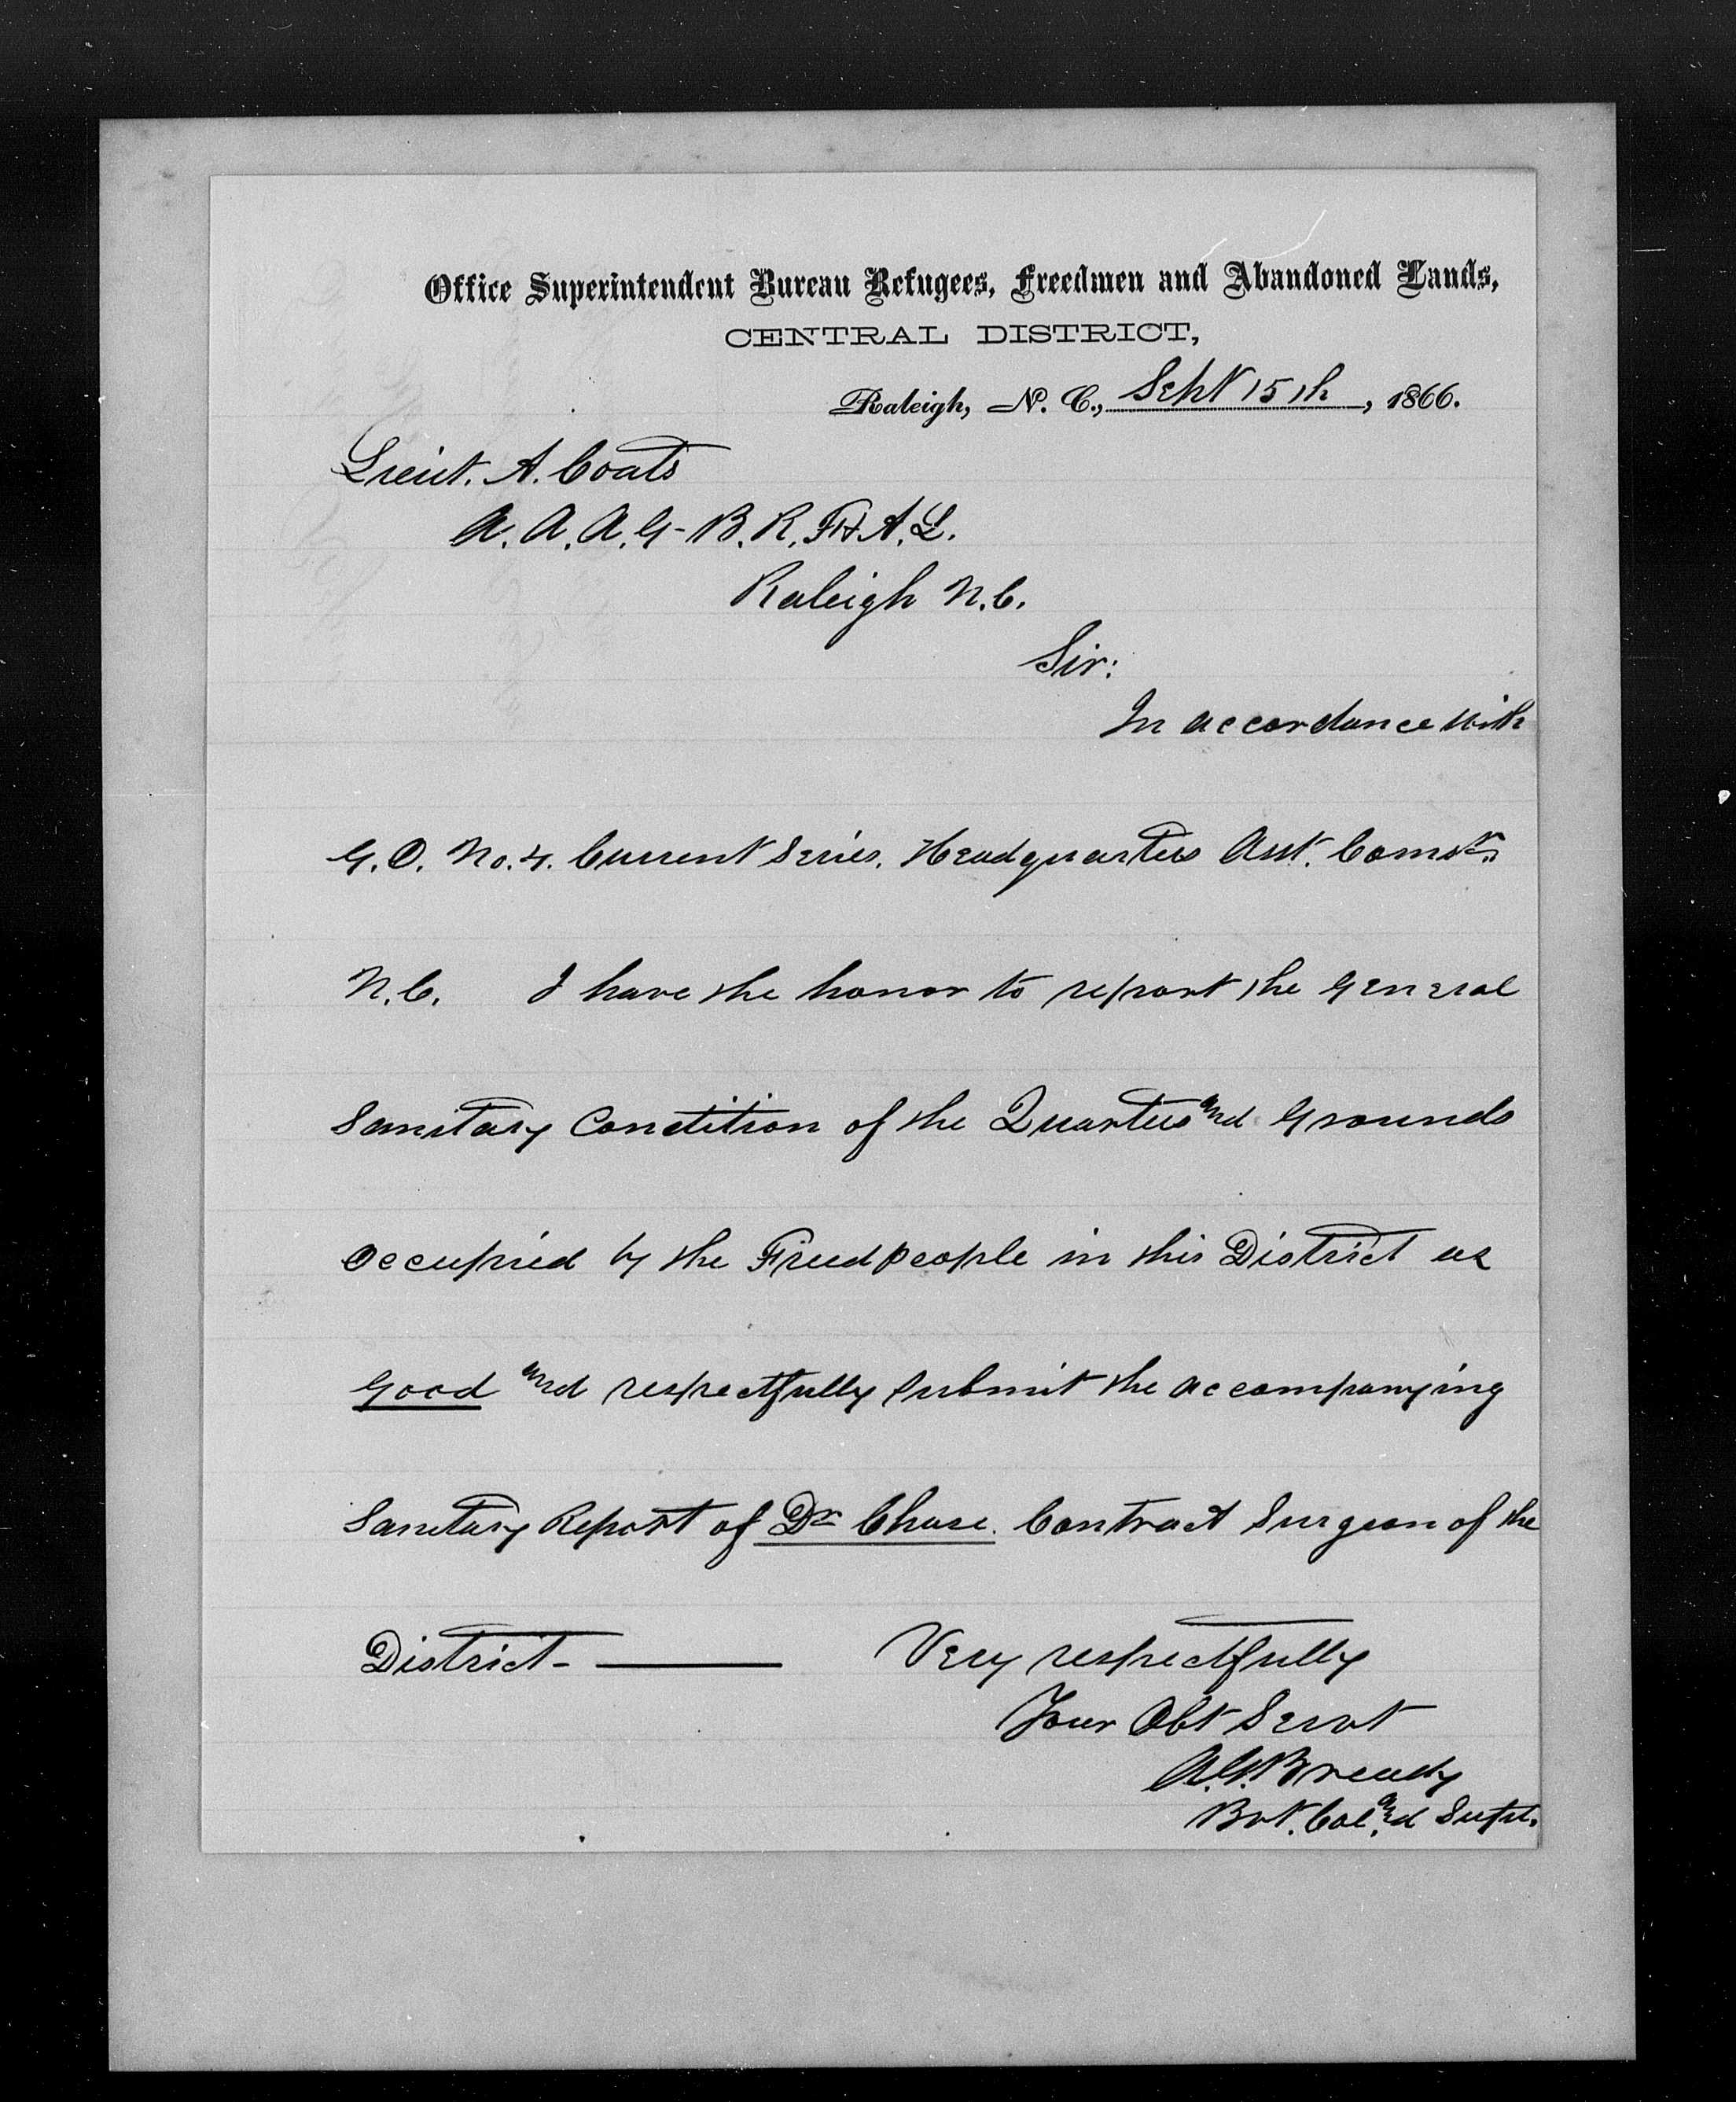 Office Superintendent Bureau Refugees, Freedmen and Abandoned Lands,
CENTRAL DISTRICT,
Raleigh, N. C., Sept 15th, 1866.
Lieut. A. Coats
A. A. A. G - B. R. F & A. L.
Raleigh N.C.
Sir:
In accordance with
G. O. No. 4. Current Series. Headquarters Asst. Comsr.
N.C. I have the honor to report the General
Sanitary Condition of the Quarters and Grounds
occupied by the Freedpeople in this District as
Good and respectfully submit the accompanying
Sanitary Report of Dr Chase. Contract Surgeon of the
District -
Very respectfully
Your Obt Servt
A. G. Brady
Bvt. Col. and Supt.